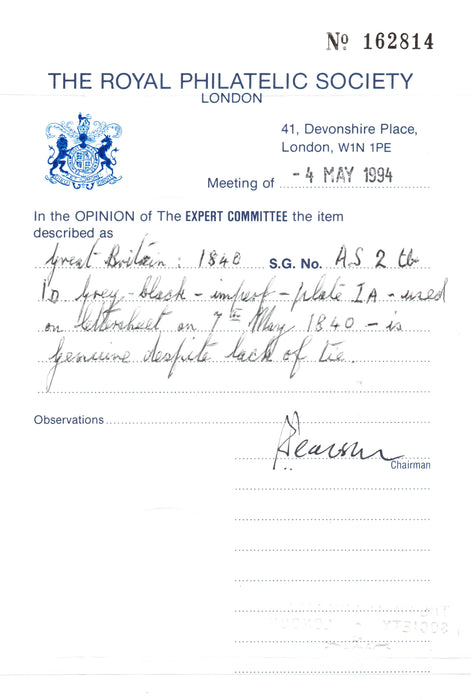 No. 162814
THE ROYAL PHILATELIC SOCIETY
LONDON
41, Devonshire Place,
London, W1N 1PE
Meeting of - 4 MAY 1994
In the OPINION of The EXPERT COMMITTEE the item
described as
Great Britain : 1840 S.G. No. AS 2 tb
1D grey-black - imperf - plate IA - used
on lettersheet on 7th May 1840 - is
genuine despite lack of tie.
Observations
Chairman
SOCIETY